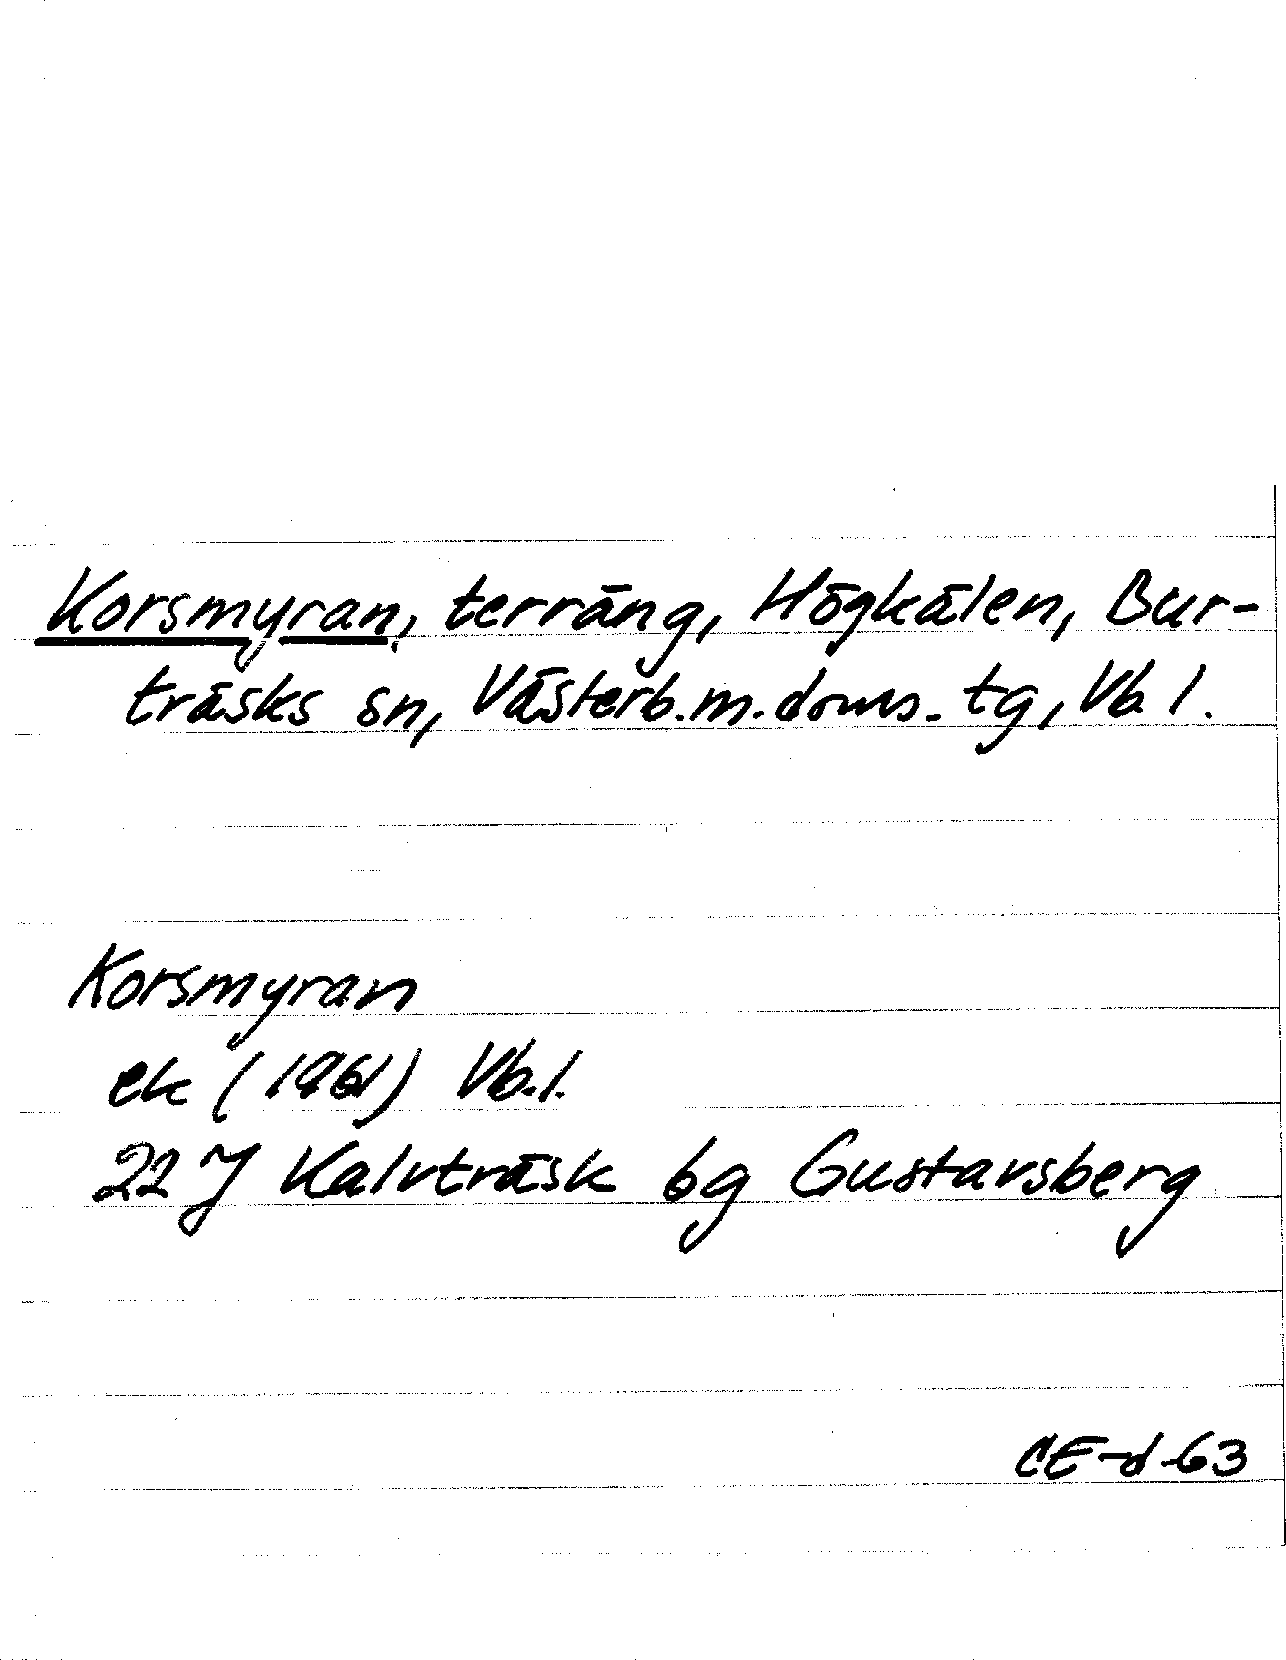 Korsmyran, terräng, Högkålen, Bur-
träsks sn, Västerb.m.doms.tg, Vb. l.
Korsmyran
ek (1961) Vb.l.
22 J Kalvträsk 6g Gustavsberg
CE-d-63